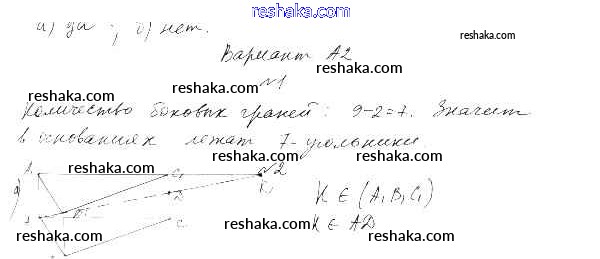 reshaka.com
а) да ; б) нет.
reshaka.com
Вариант А2
reshaka.com
№1
reshaka.com
Количество боковых граней: 9-2=7. Значит
reshaka.com
в основаниях лежат 7-угольники.
reshaka.com
reshaka.com
а)
A₁ C₁ K₁ №2
B₁ D
A C
K ∈ (A₁B₁C₁)
K ∈ AD
reshaka.com
reshaka.com
reshaka.com
reshaka.com
reshaka.com